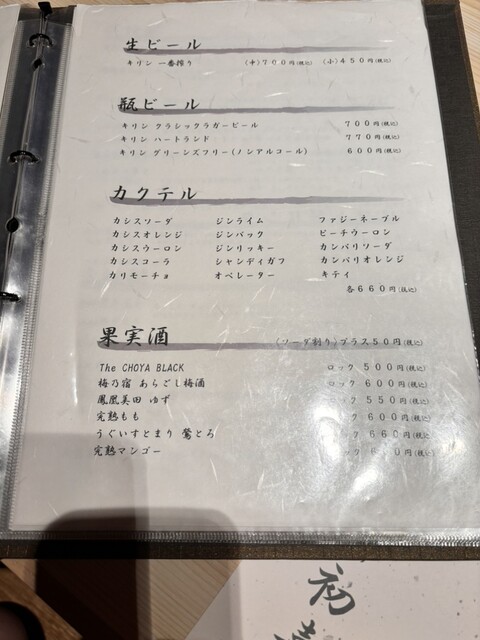 生ビール
キリン 一番搾り (中)700円(税込) (小)450円(税込)
瓶ビール
キリン クラシックラガービール 700円(税込)
キリン ハートランド 770円(税込)
キリン グリーンズフリー(ノンアルコール) 600円(税込)
カクテル
カシスソーダ ジンライム ファジーネーブル
カシスオレンジ ジンバック ピーチウーロン
カシスウーロン ジンリッキー カンパリソーダ
カシスコーラ シャンディガフ カンパリオレンジ
カリモーチョ オペレーター キティ
各660円(税込)
果実酒 (ソーダ割り)プラス50円(税込)
The CHOYA BLACK ロック 500円(税込)
梅乃宿 あらごし梅酒 ロック 600円(税込)
鳳凰美田 ゆず ロック 550円(税込)
完熟もも ロック 600円(税込)
うぐいすとまり 鶯とろ ロック 660円(税込)
完熟マンゴー ロック 660円(税込)
初